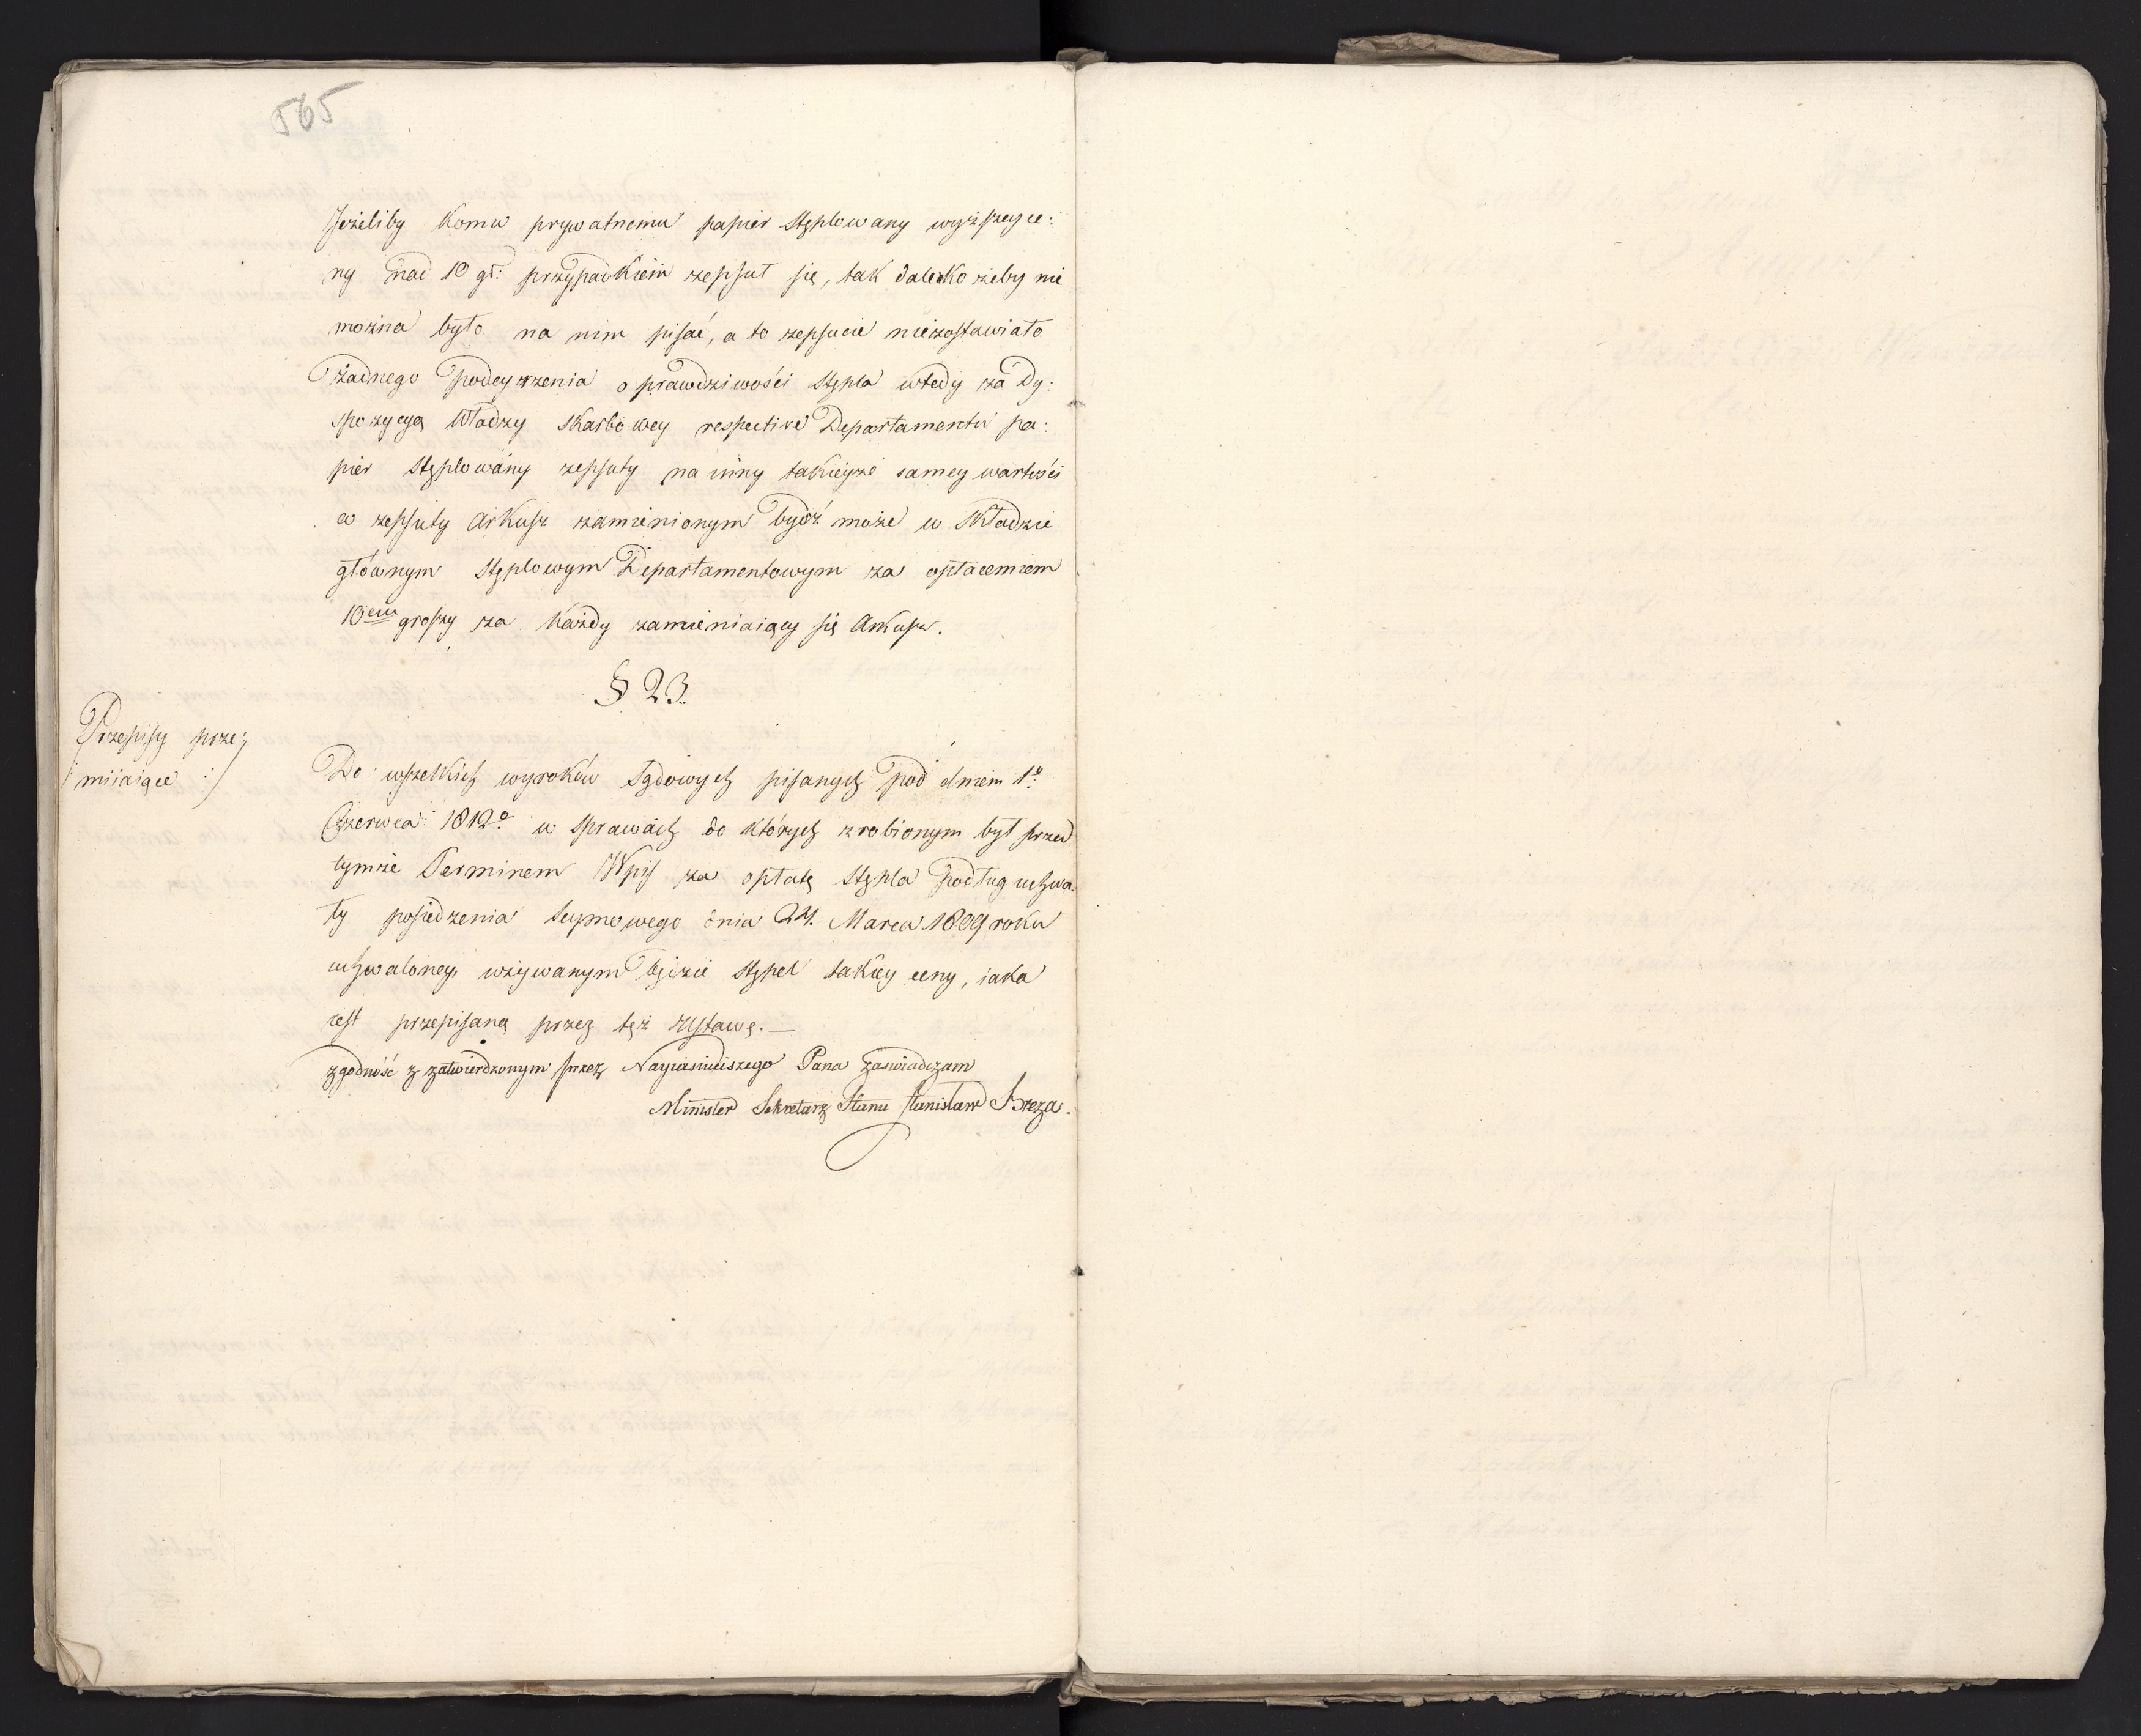 565
Jeżeliby Komu prywatnemu papier stęplowany wyższey ce:
ny nad 10 gł: przypadkiem zepsuł się, tak daleko żeby nie
można było na nim pisać, a to zepsucie niezostawiało
żadnego podeyrzenia o prawdziwości stępla wtedy za Dy:
spozycyą Władzy Skarbowey respective Departamentu pa:
pier stęplowany zepsuty na inny takieyże samey wartości
co zepsuty Arkusz zamienionym bydź może w Składzie
głównym stęplowym Departamentowym za opłaceniem
10ciu groszy za każdy zamieniaiący się Arkusz.
§ 23.
Przepisy prze:
miiaiące :/
Do wszelkich wyroków Sądowych pisanych pod dniem 1o
Czerwca 1812o w sprawach do których zrobionym był przed
tymże Terminem Wpis za opłatę stępla podług uchwa
ły posiedzenia Seymowego dnia 24. Marca 1809 roku
uchwaloney używanym będzie stępel takiey ceny, iaka
iest przepisaną przez tęż Ustawę. —
Zgodność z zatwierdzonym przez Nayiaśnieiszego Pana Zaświadczam
Minister Sekretarz Stanu Stanisław Breza.